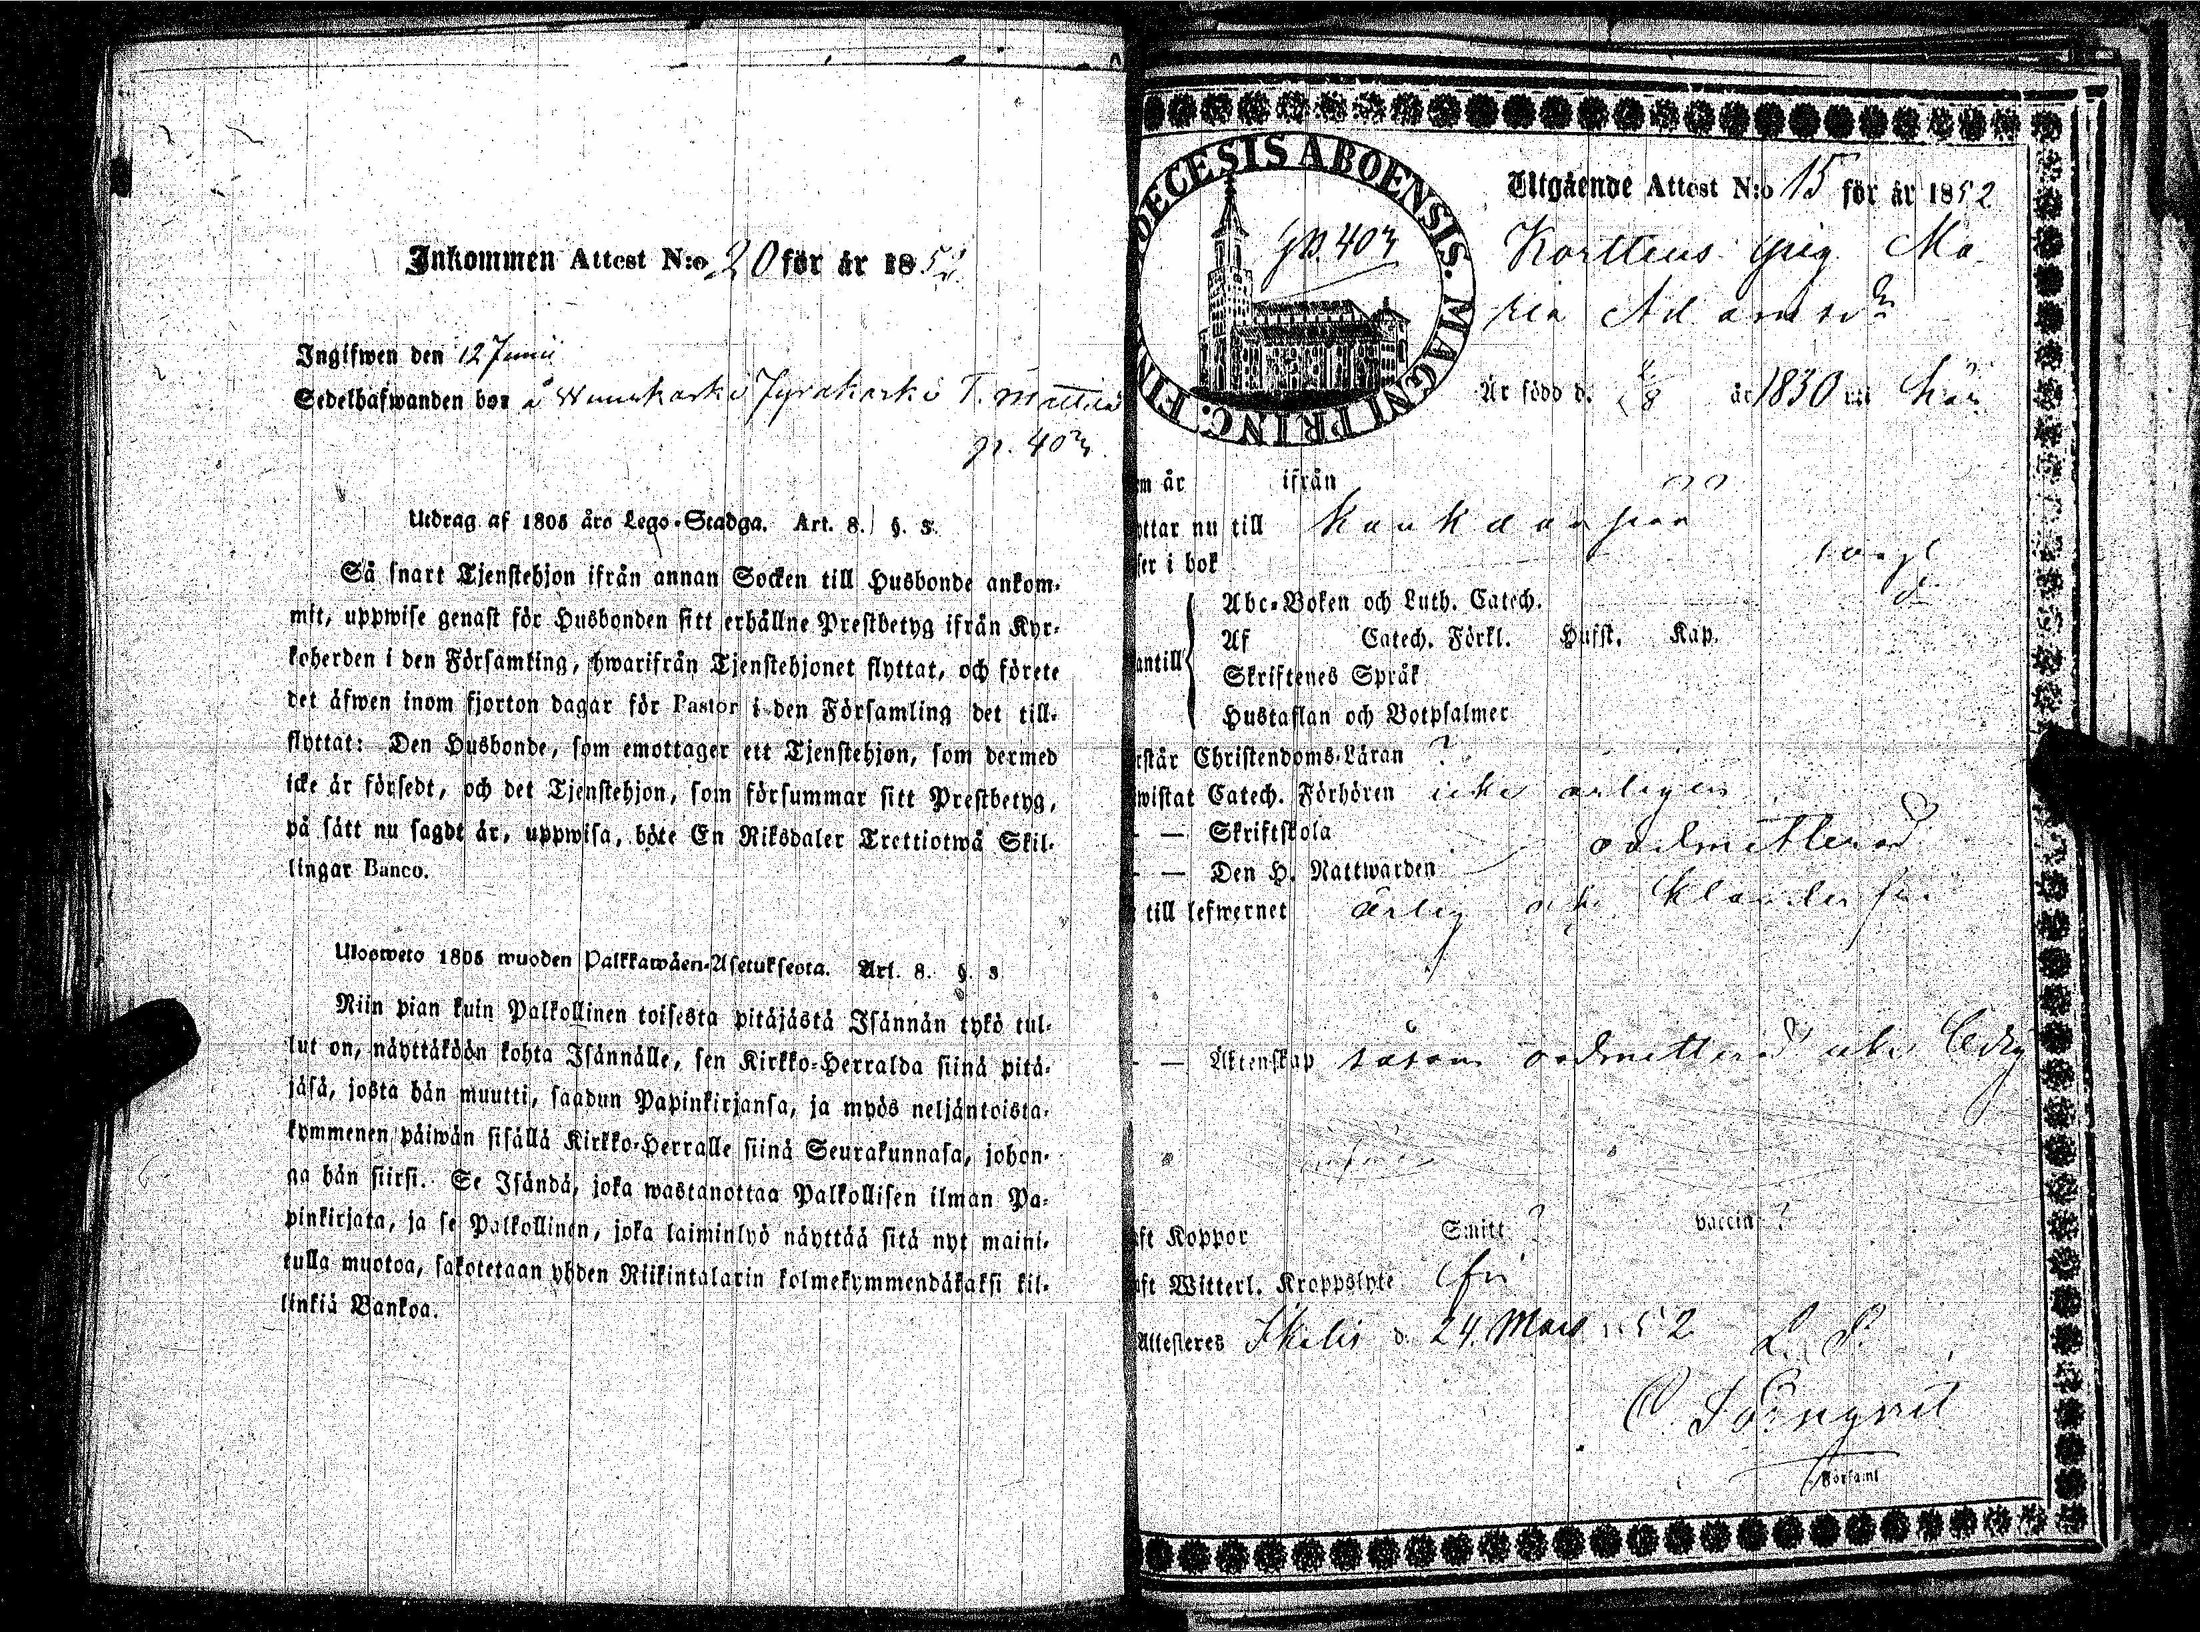 Inkommen Attest N:o 20 för år 1852
Ingifwen den 12 Junii
Sedelhafwanden bor å Jyrakoski T. Mattila
p. 403
Utdrag af 1805 års Lego-Stadga. Art. 8. §. 3.
Så snart Tjenstehjon ifrån annan Socken till Husbonde ankom-
mit, uppwise genast för Husbonden sitt erhållne Prestbetyg ifrån Kyr-
koherden i den Församling, hwarifrån Tjenstehjonet flyttat, och förete
det äfwen inom fjorton dagar för Pastor i den Församling det till-
flyttat: Den Husbonde, som emottager ett Tjenstehjon, som dermed
icke är försedt, och det Tjenstehjon, som försummar sitt Prestbetyg,
på sätt nu sagdt är, uppwisa, böte En Riksdaler Trettiotwå Skil-
lingar Banco.
Uloosweto 1805 wuoden Palkkawäen-Asetuksesta. Art. 8. §. 3
Niin pian kuin Palkollinen toisesta pitäjästä Isännän tykö tul-
lut on, näyttäköön kohta Isännälle, sen Kirkko-Herralda siinä pitä-
jäsä, josta hän muutti, saadun Papinkirjansa, ja myös neljäntoista-
kymmenen päiwän sisällä Kirkko-Herralle siinä Seurakunnasa, johon-
ga hän siirsi. Se Isändä, joka wastanottaa Palkollisen ilman Pa-
pinkirjata, ja se Palkollinen, joka laiminlyö näyttää sitä nyt maini-
tulla muotoa, sakotetaan yhden Riikintalarin kolmekymmendäkaksi kil-
linkiä Bankoa.
DIOECESIS ABOENSIS. MAGNI PRINC. FIN
p. 403
Utgående Attest N:o 15 för år 1852
Korttens pig. Ma-
ria Adamsdr
Är född d. /8 år 1830 i här
m år ifrån
ttar nu till Kankaanpää
ser i bok
Abc-Boken och Luth. Catech.
Af Catech. Förkl. Hufst. Kap.
antill Skriftenes Språk
Hustaflan och Botpsalmer
rstår Christendoms-Läran ?
wistat Catech. Förhören icke årligen
— — Skriftskola
— — Den H. Nattwarden oadmitterad
till lefwernet ärlig och klanderfri
— — Äktenskap såsom oadmitterad icke ledig
ft Koppor Smitt ? vaccin ?
ft Witterl. Kroppslyte fri
Attesteres Ikalis d. 24 Mars 1852
L. S.
Församl